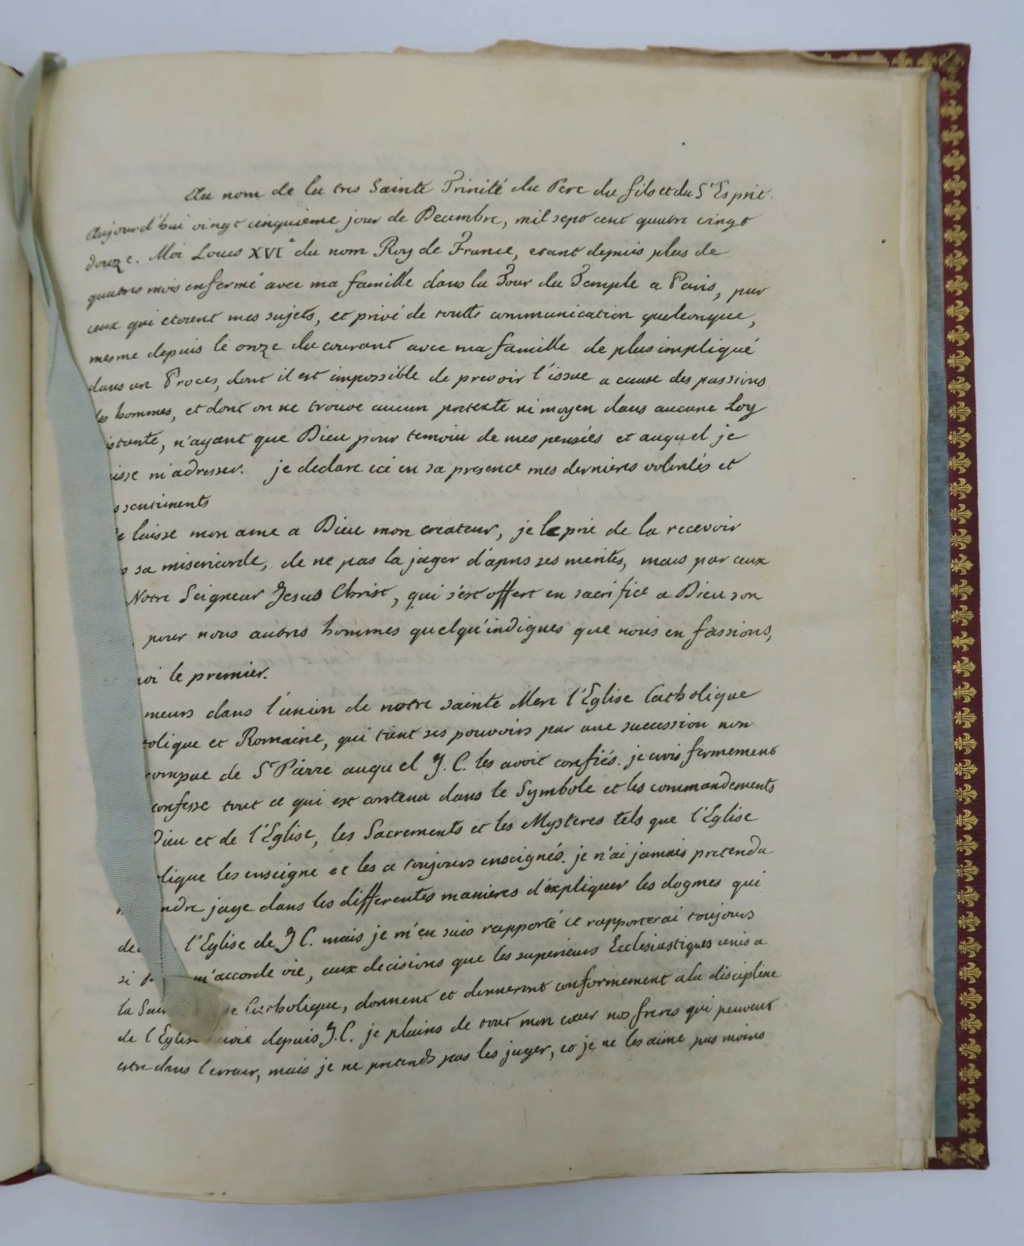 Au nom de la tres Sainte Trinité du Pere du fils et du St Esprit.
Aujourd'hui vingt cinquieme jour de Decembre, mil sept cent quatre vingt
douze. Moi Louis XVIe du nom Roy de France, etant depuis plus de
quatres mois enfermé avec ma famille dans la Tour du Temple a Paris, par
ceux qui etoient mes sujets, et privé de toutte communication quelconque,
mesme depuis le onze du courant avec ma famille de plus impliqué
dans un Proces, dont il est impossible de prevoir l'issue a cause des passions
des hommes, et dont on ne trouve aucun pretexte ni moyen dans aucune Loy
istante, n'ayant que Dieu pour temoin de mes pensées et auquel je
isse m'adresser. je declare ici en sa presence mes dernieres volontés et
s sentiments
e laisse mon ame a Dieu mon createur, je le prie de la recevoir
s sa misericorde, de ne pas la juger d'apres ses merites, mais par ceux
Notre Seigneur Jesus Christ, qui s'est offert en sacrifice a Dieu son
, pour nous autres hommes quelqu'indignes que nous en fassions,
et moi le premier.
meurs dans l'union de notre sainte Mere l'Eglise Catholique
tolique et Romaine, qui tient ses pouvoirs par une succession non
rompue de St Pierre auquel J. C. les avoit confiés. je crois fermement
confesse tout ce qui est contenu dans le Symbole et les commandements
Dieu et de l'Eglise, les Sacrements et les Mysteres tels que l'Eglise
olique les enseigne et les a toujours enseignés. je n'ai jamais pretendu
ndre juge dans les differentes manieres d'expliquer les dogmes qui
de l'Eglise de J C. mais je m'en suis rapporté et rapporterai toujours
si m'accorde vie, aux decisions que les superieurs Ecclesiastiques unis a
la Sain e Catholique, donnent et donneront conformement a la discipline
de l'Eglise suivie depuis J. C. je plains de tout mon cœur nos freres qui peuvent
estre dans l'erreur, mais je ne pretends pas les juger, et je ne les aime pas moins